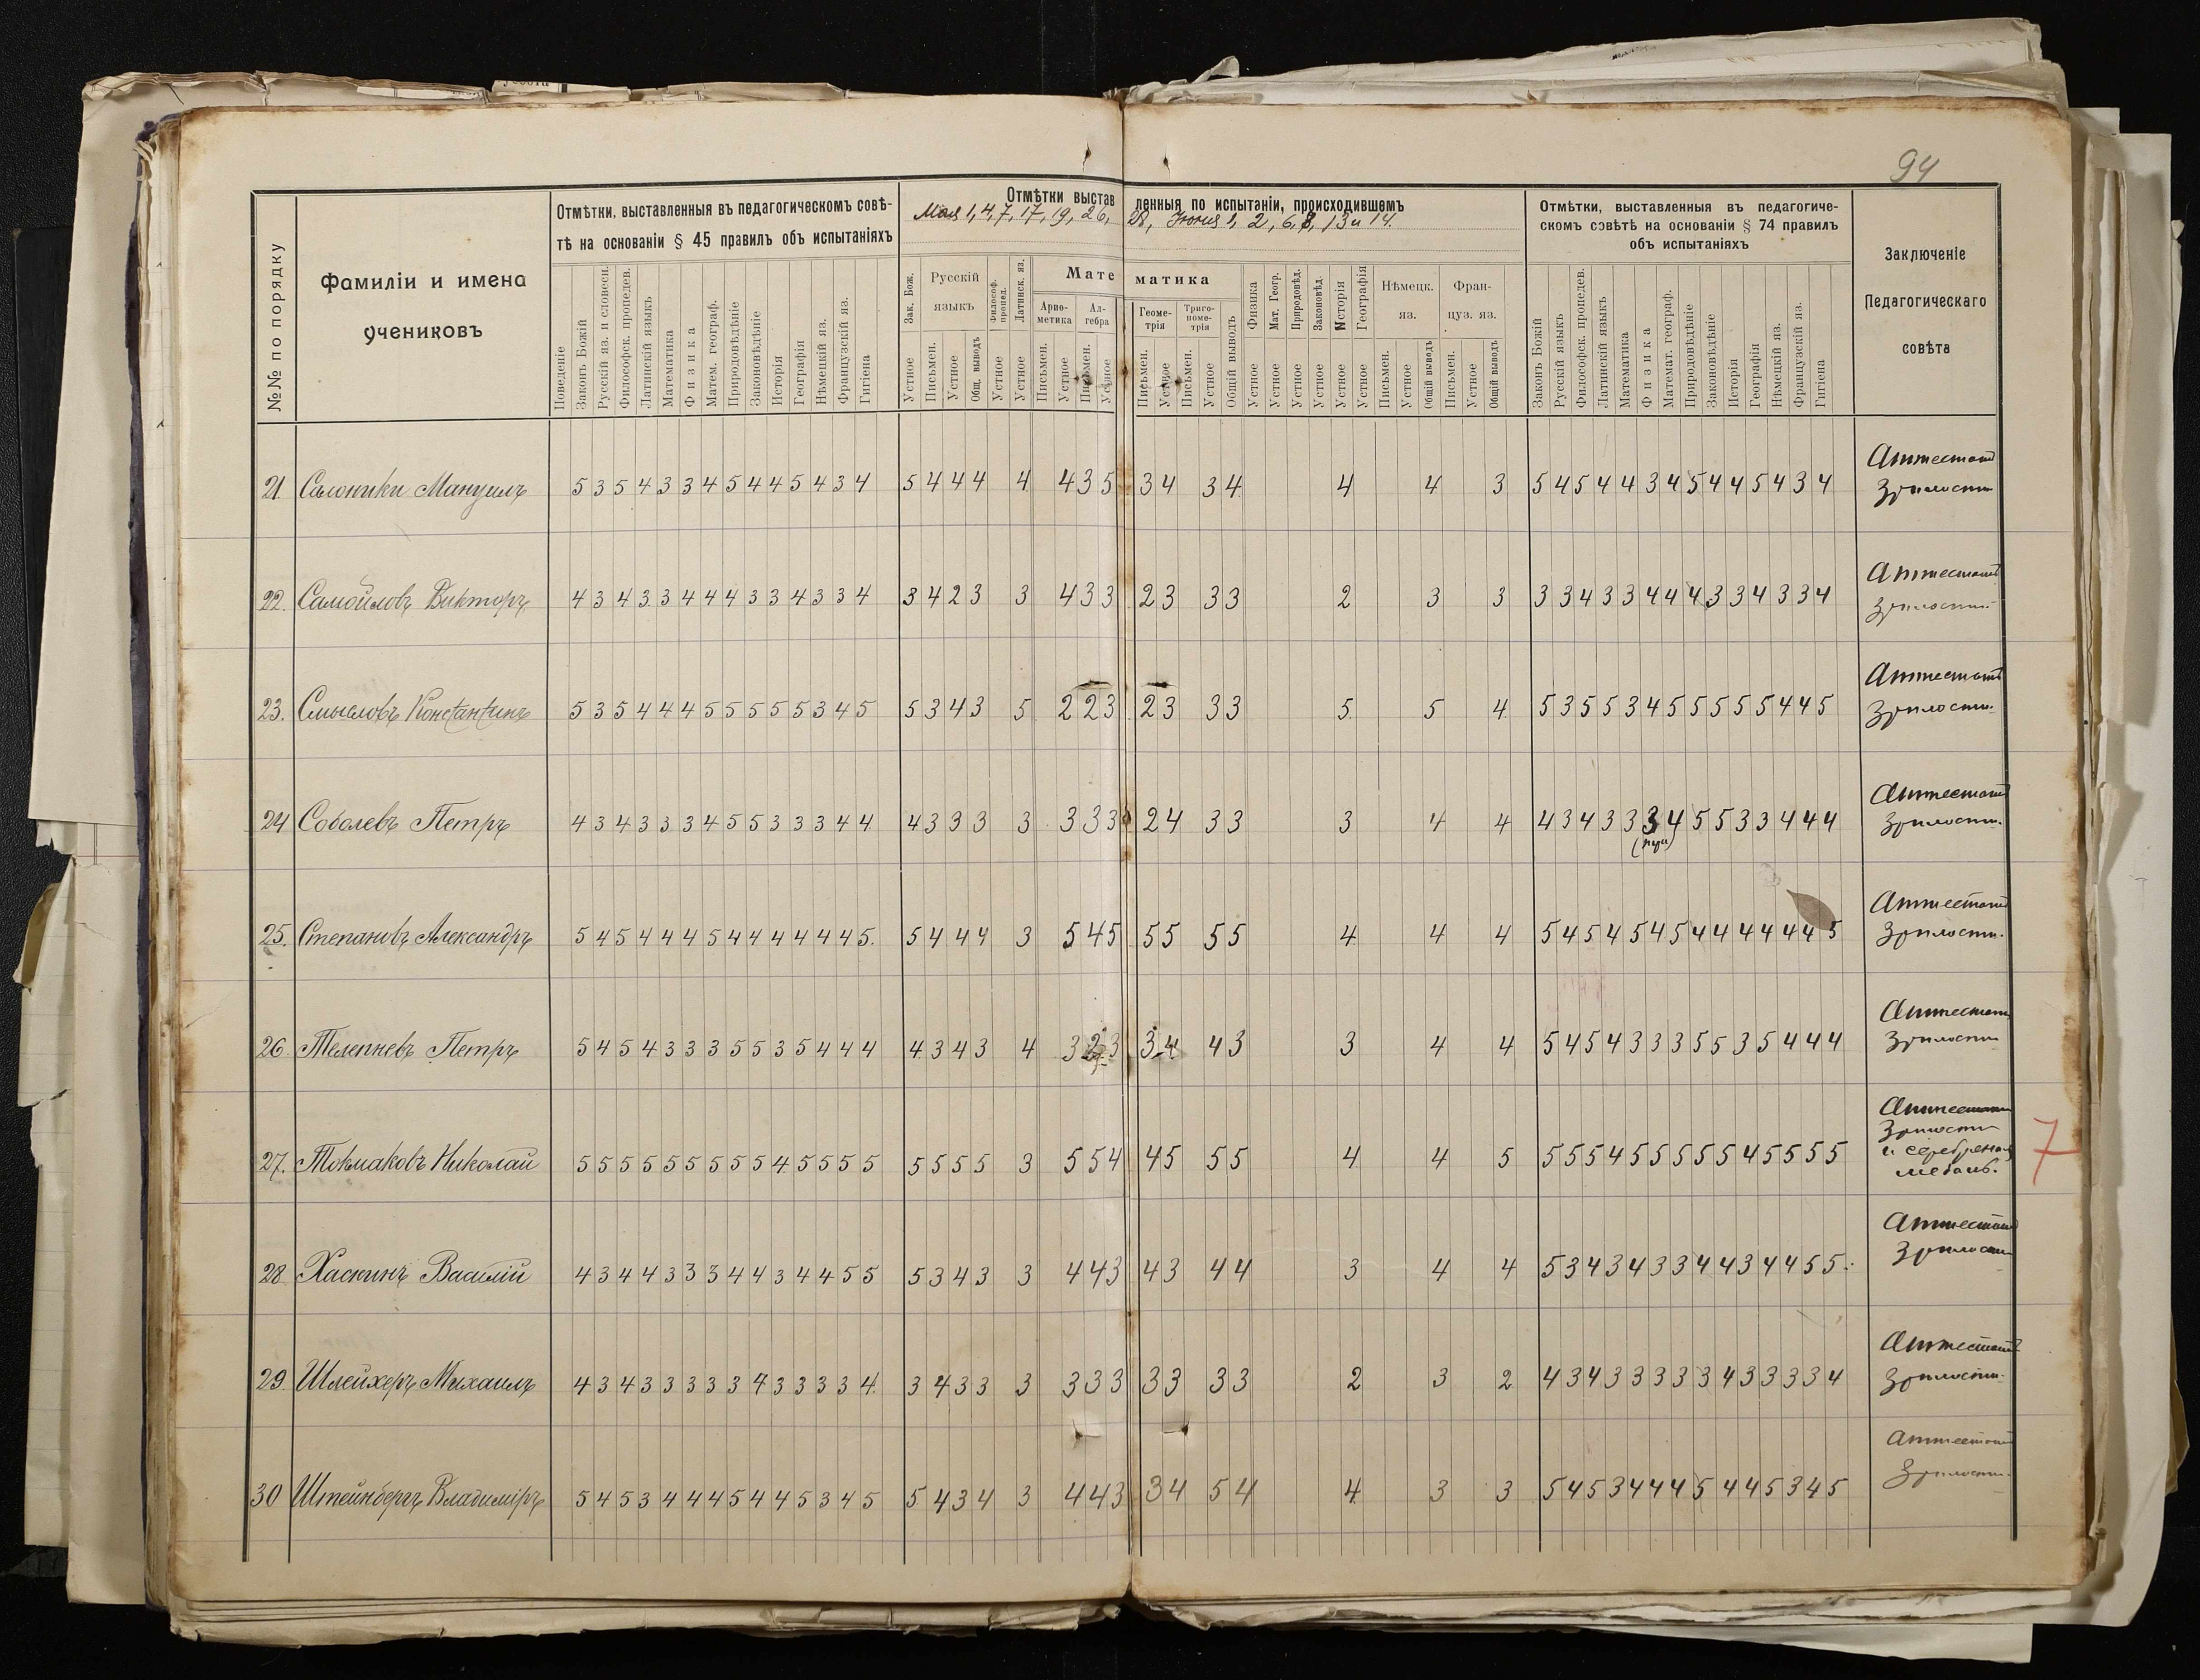 94
№№ по порядку
Фамиліи и имена
учениковъ
Отмѣтки, выставленныя въ педагогическомъ совѣ-
тѣ на основаніи § 45 правилъ объ испытаніяхъ
Поведеніе
Законъ Божій
Русскій яз. и словесн.
Философск. пропедев.
Латинскій языкъ
Математика
Физика
Матем. географ.
Природовѣдѣніе
Законовѣдѣніе
Исторія
Географія
Нѣмецкій яз.
Французскій яз.
Гигіена
Отмѣтки выставленныя по испытаніи, происходившемъ
Мая 1, 4, 7, 17, 19, 26, 28, Іюня 1, 2, 6, 8, 13 и 14.
Зак. Бож.
Устное
Русскій
языкъ
Письмен.
Устное
Общ. выводъ
Философ. пропед.
Устное
Латинск. яз.
Устное
Математика
Ариѳ-
метика
Письмен.
Устное
Ал-
гебра
Письмен.
Устное
Геоме-
трія
Письмен.
Устное
Триго-
номе-
трія
Письмен.
Устное
Общій выводъ
Физика
Устное
Мат. Геогр.
Устное
Природовѣд.
Устное
Законовѣд.
Устное
Исторія
Устное
Географія
Устное
Нѣмецк.
яз.
Письмен.
Устное
Общій выводъ
Фран-
цуз. яз.
Письмен.
Устное
Общій выводъ
Отмѣтки, выставленныя въ педагогиче-
скомъ совѣтѣ на основаніи § 74 правилъ
объ испытаніяхъ
Законъ Божій
Русскій языкъ
Философск. пропедев.
Латинскій языкъ
Математика
Физика
Математ. географ.
Природовѣдѣніе
Законовѣдѣніе
Исторія
Географія
Нѣмецкій яз.
Французскій яз.
Гигіена
Заключеніе
Педагогическаго
совѣта
21 Салоники Мануилъ 5 3 5 4 3 3 4 5 4 4 5 4 3 4 5 4 4 4 4 4 3 5 3 4 3 4 4 4 3 5 4 5 4 4 3 4 5 4 4 5 4 3 4 Аттестатъ
Зрѣлости
22. Самойловъ Викторъ 4 3 4 3 3 4 4 4 3 3 4 3 3 4 3 4 2 3 3 4 3 3 2 3 3 3 2 3 3 3 3 4 3 3 4 4 4 3 3 4 3 3 4 Аттестатъ
Зрѣлости
23. Смысловъ Константинъ 5 3 5 4 4 4 5 5 5 5 5 3 4 5 5 3 4 3 5 2 2 3 2 3 3 3 5 5 4 5 3 5 5 3 4 5 5 5 5 5 4 4 5 Аттестатъ
Зрѣлости.
24 Соболевъ Петръ 4 3 4 3 3 3 4 5 5 3 3 3 4 4 4 3 3 3 3 3 3 3 2 4 3 3 3 4 4 4 3 4 3 3 3 4 5 5 3 3 4 4 4 Аттестатъ
(три) Зрѣлости.
25. Степановъ Александръ 5 4 5 4 4 4 5 4 4 4 4 4 4 5. 5 4 4 4 3 5 4 5 5 5 5 5 4 4 4 5 4 5 4 5 4 5 4 4 4 4 4 4 5 Аттестатъ
Зрѣлости.
26. Телепневъ Петръ 5 4 5 4 3 3 3 5 5 3 5 4 4 4 4 3 4 3 4 3 2 3 3 4 4 3 3 4 4 5 4 5 4 3 3 3 5 5 3 5 4 4 4 Аттестатъ
Зрѣлости
27. Токмаковъ Николай 5 5 5 5 5 5 5 5 5 4 5 5 5 5 5 5 5 5 3 5 5 4 4 5 5 5 4 4 5 5 5 5 4 5 5 5 5 5 4 5 5 5 5 Аттестатъ
Зрѣлости
и серебреная
медаль.
7
28 Хаскинъ Василій 4 3 4 4 3 3 3 4 4 3 4 4 5 5 5 3 4 3 3 4 4 3 4 3 4 4 3 4 4 5 3 4 3 4 3 3 4 4 3 4 4 5 5. Аттестатъ
Зрѣлости
29. Шлейхеръ Михаилъ 4 3 4 3 3 3 3 3 4 3 3 3 3 4. 3 4 3 3 3 3 3 3 3 3 3 3 2 3 2 4 3 4 3 3 3 3 3 4 3 3 3 3 4 Аттестатъ
Зрѣлости.
30 Штейнбергъ Владиміръ 5 4 5 3 4 4 4 5 4 4 5 3 4 5 5 4 3 4 3 4 4 3 3 4 5 4 4 3 3 5 4 5 3 4 4 4 5 4 4 5 3 4 5 Аттестатъ
Зрѣлости.